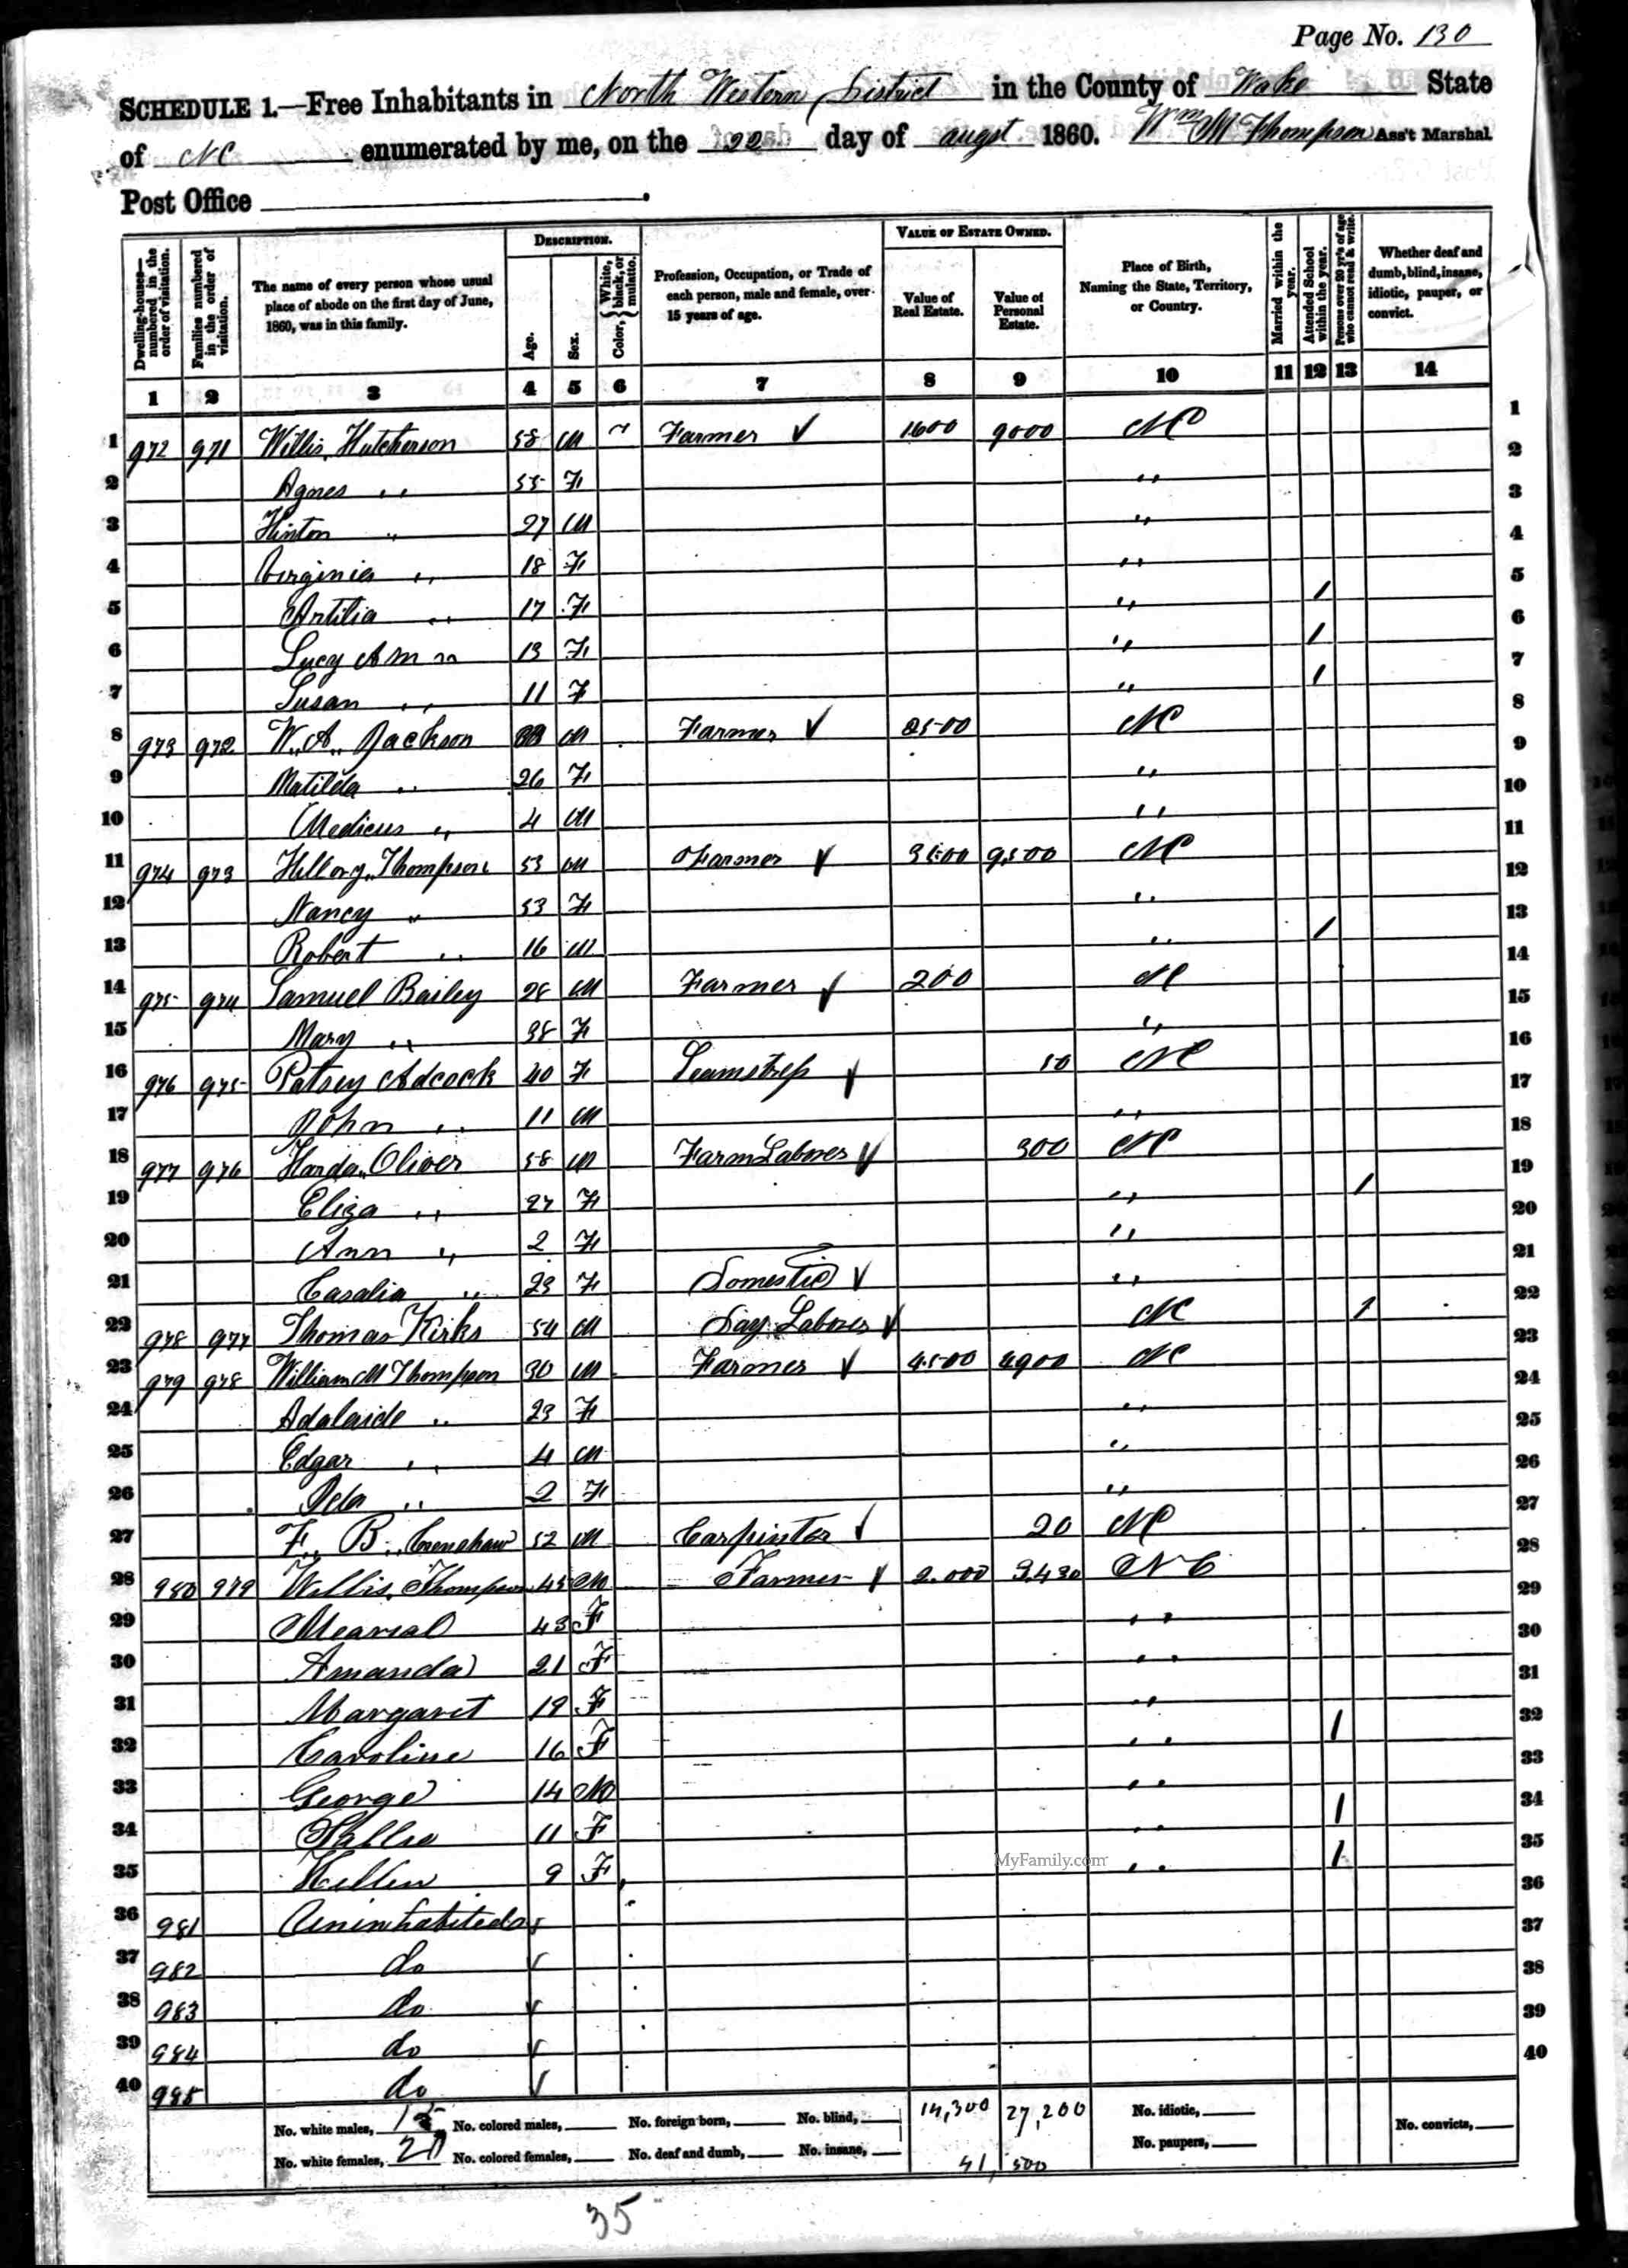 Page No. 130
SCHEDULE 1.—Free Inhabitants in North Western District in the County of Wake State
of NC enumerated by me, on the 22 day of augst 1860. Wm M Thompson Ass't Marshal.
Post Office
Dwelling-houses—numbered in the order of visitation.
Families numbered in the order of visitation.
The name of every person whose usual place of abode on the first day of June, 1860, was in this family.
DESCRIPTION.
Age.
Sex.
Color, { White, black, or mulatto.
Profession, Occupation, or Trade of each person, male and female, over 15 years of age.
VALUE OF ESTATE OWNED.
Value of Real Estate.
Value of Personal Estate.
Place of Birth, Naming the State, Territory, or Country.
Married within the year.
Attended School within the year.
Persons over 20 y'rs of age who cannot read & write.
Whether deaf and dumb, blind, insane, idiotic, pauper, or convict.
1 2 3 4 5 6 7 8 9 10 11 12 13 14
1 972 971 Willis Hutcherson 58 M Farmer ✓ 1600 9000 NC 1
2 Agnes " 55 F " 2
3 Hinton " 27 M " 3
4 Virginia " 18 F " 4
5 Artilia " 17 F " / 5
6 Lucy A M " 13 F " / 6
7 Susan " 11 F " / 7
8 973 972 W. A. Jackson M Farmer ✓ 2500 NC 8
9 Matilda " 26 F " 9
10 Medicus " 4 M " 10
11 974 973 Hillory Thompson 53 M Farmer ✓ 3500 9500 NC 11
12 Nancy " 53 F " 12
13 Robert " 16 M " / 13
14 975 974 Samuel Bailey 28 M Farmer ✓ 200 NC 14
15 Mary " 38 F " 15
16 976 975 Patsey Adcock 40 F Seamstress ✓ 50 NC 16
17 John " 11 M " 17
18 977 976 Oliver 58 M Farm Laborer ✓ 300 NC 18
19 Eliza " 27 F " / 19
20 Ann " 2 F " 20
21 Casalia " 23 F Domestic ✓ " 21
22 978 977 Thomas Kirks 54 M Day Laborer ✓ NC / 22
23 979 978 William M Thompson 30 M Farmer ✓ 4500 4900 NC 23
24 Adalaide " 23 F " 24
25 Edgar " 4 M " 25
26 Ida " 2 F " 26
27 F. B. Crenshaw 52 M Carpinter ✓ 20 NC 27
28 980 979 Willis Thompson 45 M Farmer ✓ 2.000 3.430 NC 28
29 43 F " 29
30 Amanda 21 F " 30
31 Margaret 19 F " 31
32 Caroline 16 F " / 32
33 George 14 M " 33
34 Sallie 11 F " / 34
35 Hellen 9 F " / 35
36 981 Uninhabited ✓ 36
37 982 do ✓ 37
38 983 do ✓ 38
39 984 do ✓ 39
40 985 do ✓ 40
MyFamily.com
No. white males, 15 No. colored males, No. foreign born, No. blind, 14,300 27,200 No. idiotic, No. convicts,
No. white females, 20 No. colored females, No. deaf and dumb, No. insane, 41,500 No. paupers,
35